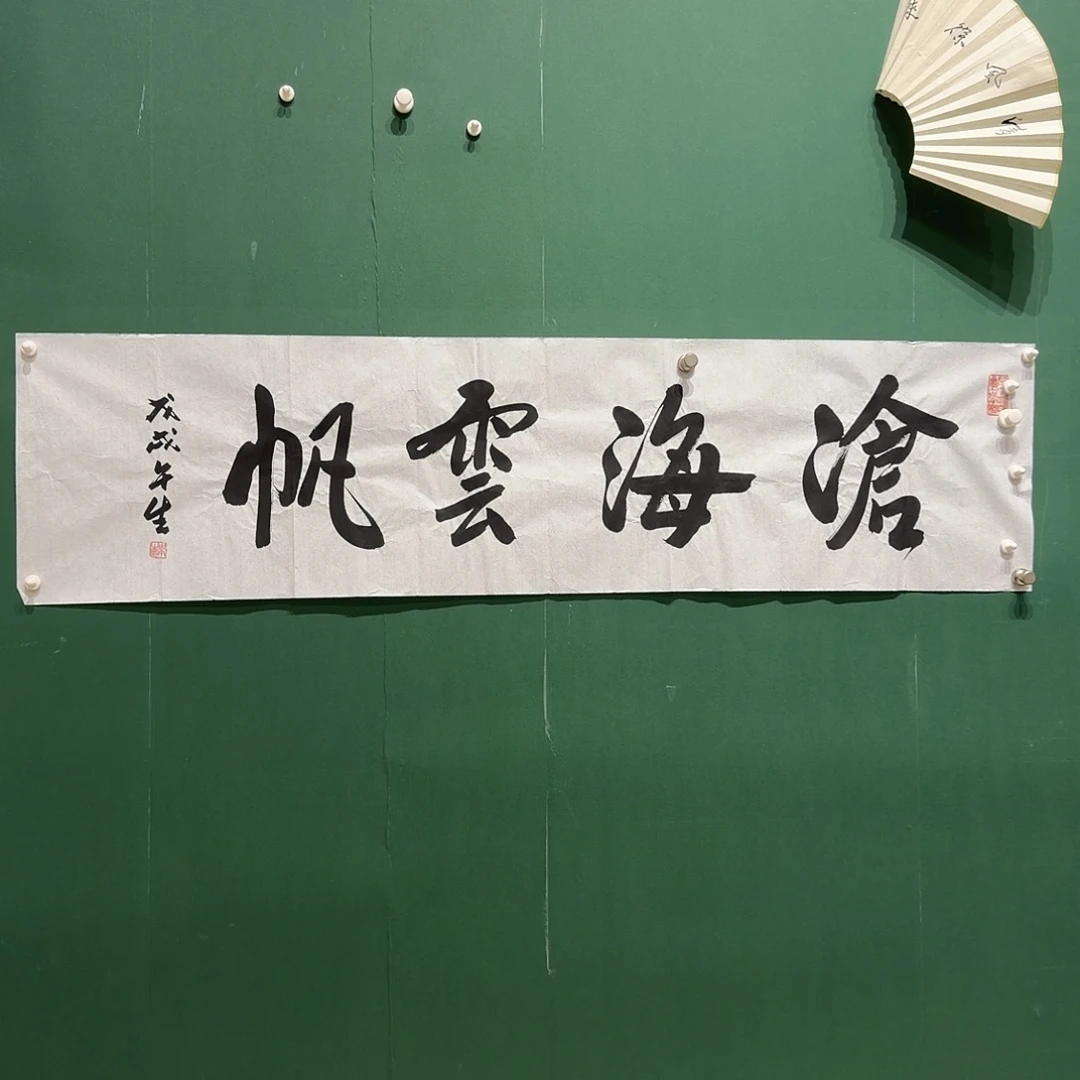 滄海雲帆
戊戌午生